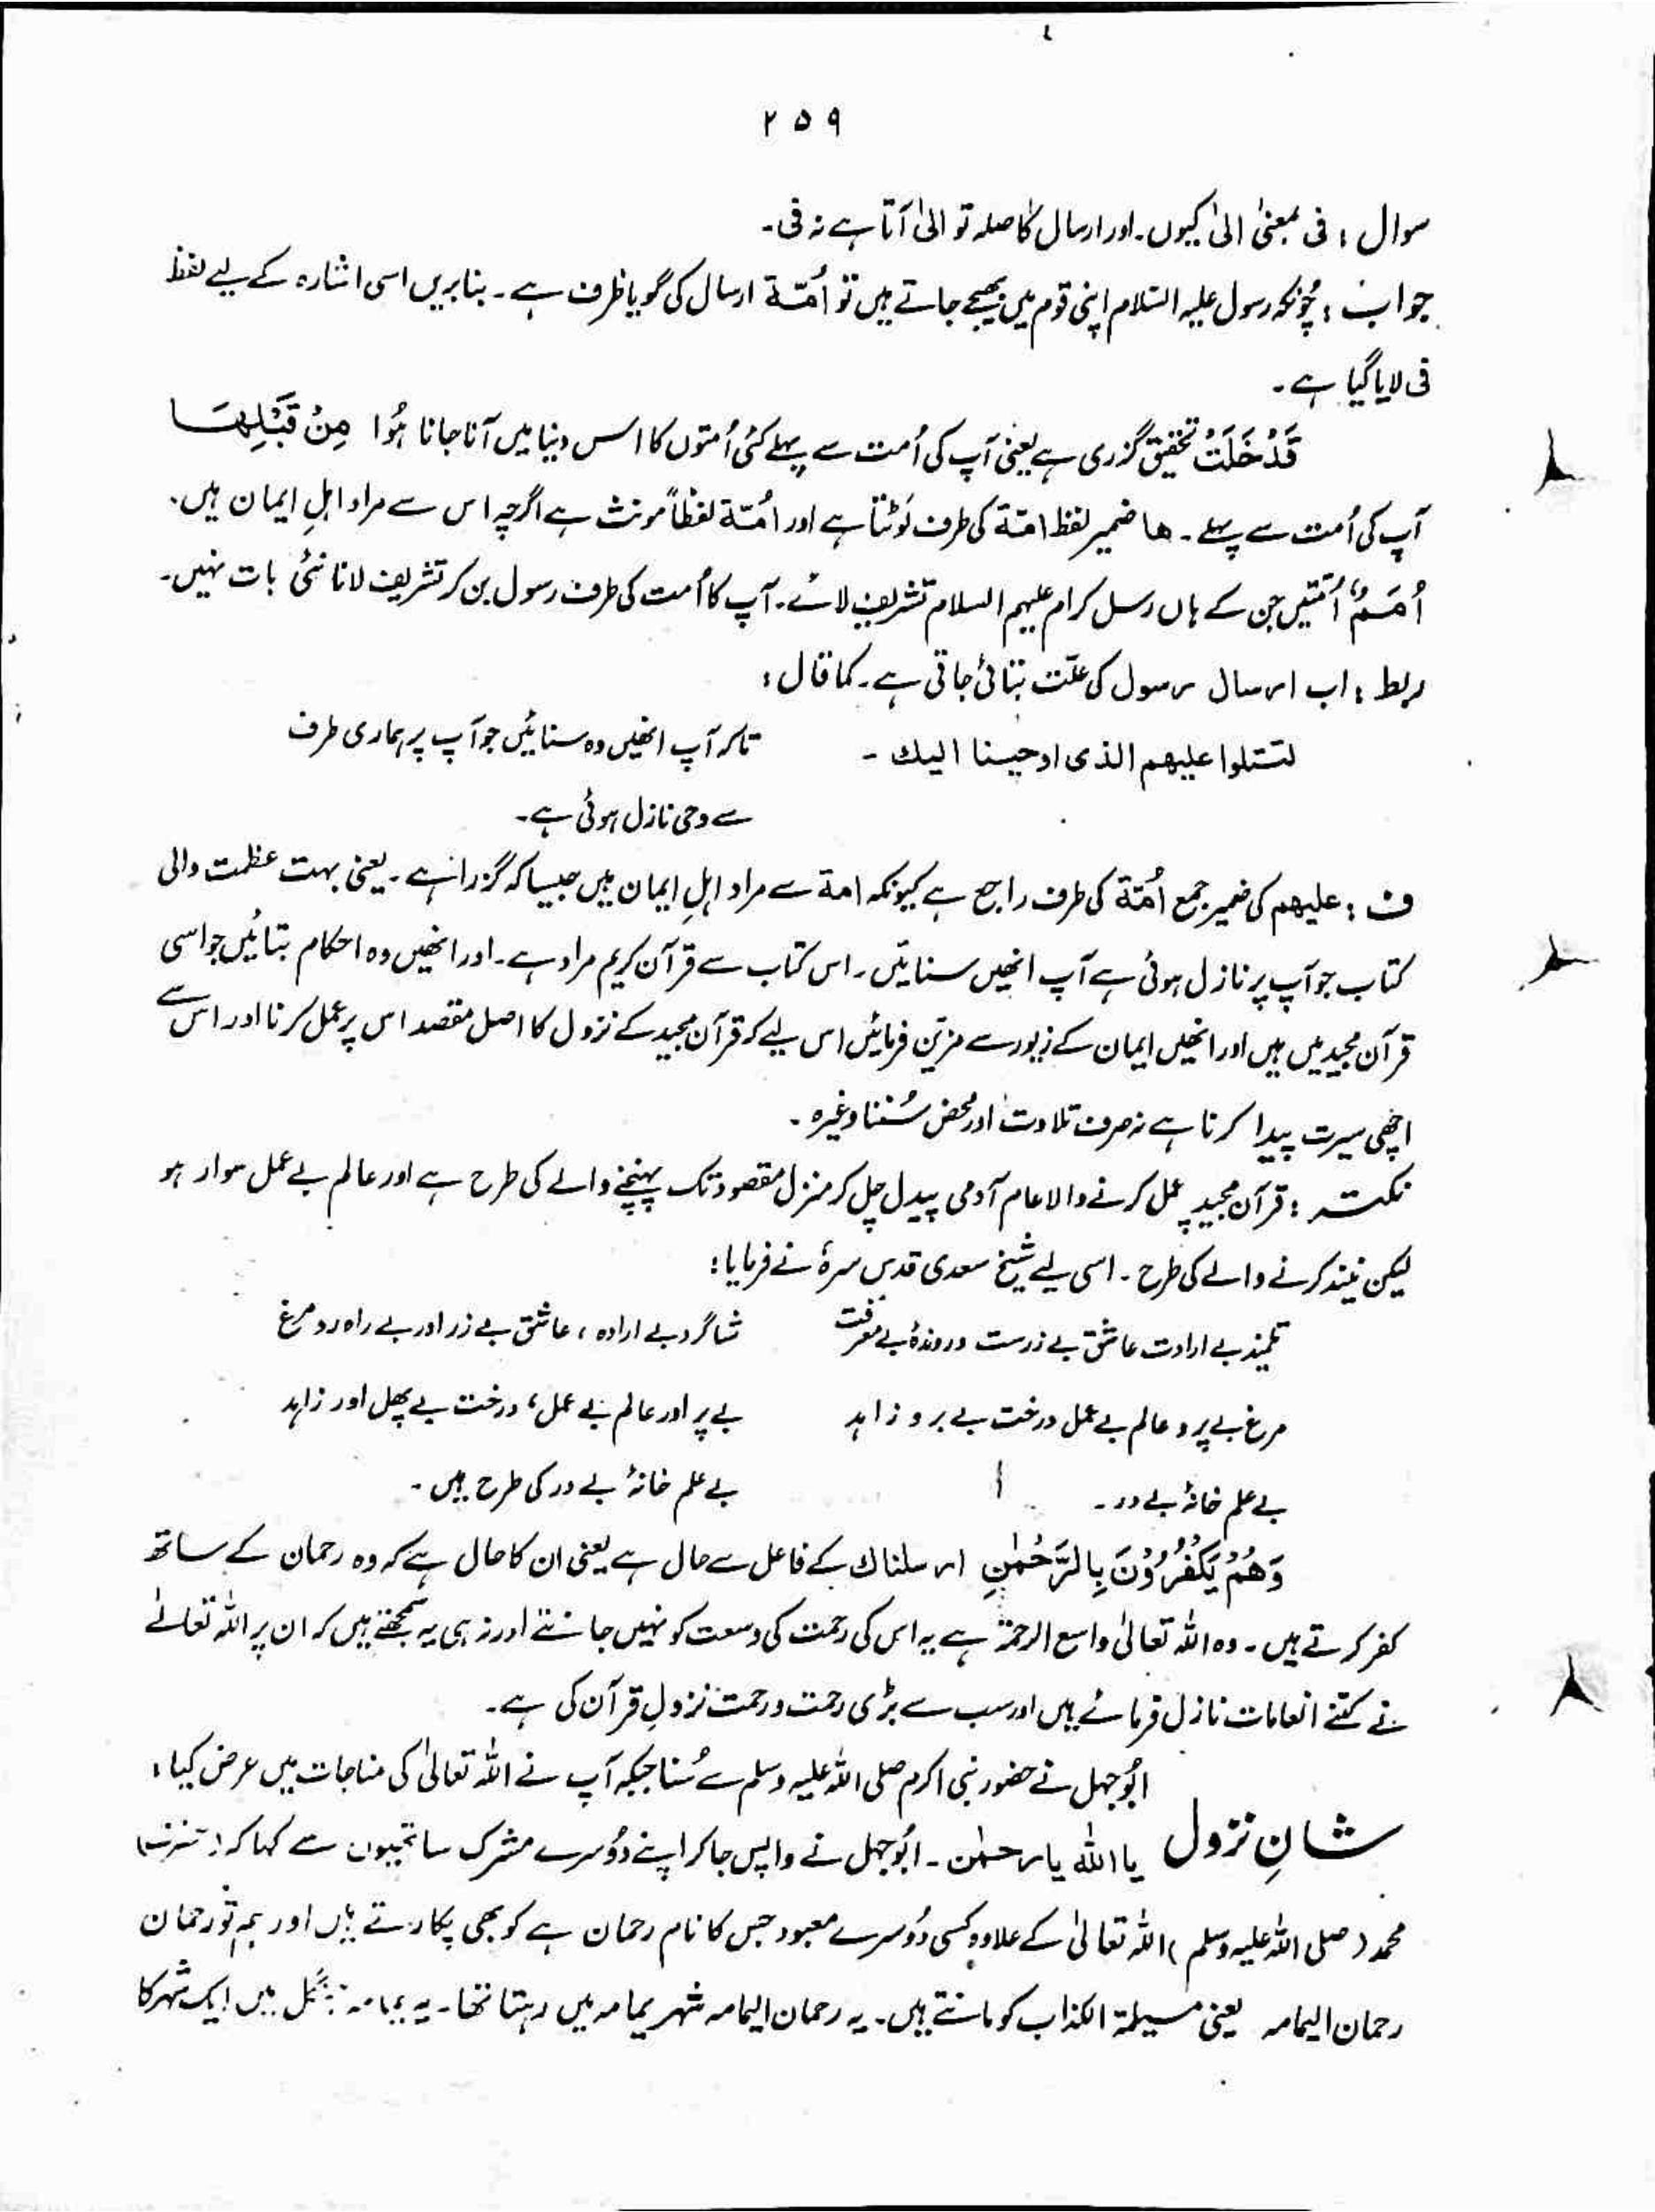 ۲۵۹
سوال : فی بمعنیٰ الیٰ کیوں۔ اور ارسال کا صلہ تو الیٰ آتا ہے نہ فی۔
جواب : چُونکہ رسول علیہ السّلام اپنی قوم میں بھیجے جاتے ہیں تو اُمّۃ ارسال کی گویا ظرف ہے۔ بنا بریں اسی اشارہ کے لیے لفظ
فی لایا گیا ہے۔
قَدْ خَلَتْ تحقیق گزری ہے یعنی آپ کی اُمت سے پہلے کئی اُمتوں کا اس دنیا میں آنا جانا ہُوا مِنْ قَبْلِهَا
آپ کی اُمت سے پہلے۔ ھا ضمیر لفظ امّۃ کی طرف لَوٹتا ہے اور اُمّۃ لفظاً مونث ہے اگرچہ اس سے مراد اہلِ ایمان ہیں۔
اُمَمٌ اُمّتیں جن کے ہاں رسل کرام علیہم السلام تشریف لائے۔ آپ کا اُمت کی طرف رسول بن کر تشریف لانا نئی بات نہیں۔
ربط : اب ارسال رسول کی علّت بتائی جاتی ہے۔ کما قال :
لتتلوا علیھم الذی اوحینا الیك ۔ تاکہ آپ انھیں وہ سنائیں جو آپ پر ہماری طرف
سے وحی نازل ہوئی ہے۔
ف : علیھم کی ضمیر جمع اُمّۃ کی طرف راجع ہے کیونکہ امۃ سے مراد اہلِ ایمان ہیں جیسا کہ گزرا ہے۔ یعنی بہت عظمت والی
کتاب جو آپ پر نازل ہوئی ہے آپ انھیں سنایئں۔ اس کتاب سے قرآن کریم مراد ہے۔ اور انھیں وہ احکام بتائیں جو اسی
قرآن مجید میں ہیں اور انھیں ایمان کے زیور سے مزیّن فرمائیں اس لیے کہ قرآن مجید کے نزول کا اصل مقصد اس پر عمل کرنا اور اس سے
اچھی سیرت پیدا کرنا ہے نہ صرف تلاوت اور محض سُننا وغیرہ۔
نکتہ : قرآن مجید پر عمل کرنے والا عام آدمی پیدل چل کر منزل مقصود تک پہنچنے والے کی طرح ہے اور عالم بے عمل سوار ہو
لیکن نیند کرنے والے کی طرح۔ اسی لیے شیخ سعدی قدس سرہٗ نے فرمایا :
تلمیذ بے ارادت عاشق بے زرست و روندۂ بے معرفت شاگرد بے ارادہ ، عاشق بے زر اور بے راہ رو مرغ
مرغ بے پر و عالم بے عمل درخت بے بر و زاہد بے پر اور عالم بے عمل ، درخت بے پھل اور زاہد
بے علم خانۂ بے در۔ بے علم خانۂ بے در کی طرح ہیں۔
وَهُمْ يَكْفُرُوْنَ بِالرَّحْمٰنِ ارسلناك کے فاعل سے حال ہے یعنی ان کا حال ہے کہ وہ رحمان کے ساتھ
کفر کرتے ہیں۔ وہ اللہ تعالیٰ واسع الرحمۃ ہے یہ اس کی رحمت کی وسعت کو نہیں جانتے اور نہ ہی یہ سمجھتے ہیں کہ ان پر اللہ تعالیٰ
نے کتنے انعامات نازل فرمائے ہیں اور سب سے بڑی رحمت و رحمت نزولِ قرآن کی ہے۔
ابُوجہل نے حضور نبی اکرم صلی اللہ علیہ وسلم سے سُنا جبکہ آپ نے اللہ تعالیٰ کی مناجات میں عرض کیا :
شانِ نزول یا اللہ یا رحمٰن۔ ابُوجہل نے واپس جا کر اپنے دُوسرے مشرک ساتھیوں سے کہا کہ (حضرت)
محمد (صلی اللہ علیہ وسلم) اللہ تعالیٰ کے علاوہ کسی دُوسرے معبود جس کا نام رحمان ہے کو بھی پکارتے ہیں اور ہم تو رحمان
رحمان الیمامہ یعنی مسیلمۃ الکذاب کو مانتے ہیں۔ یہ رحمان الیمامہ شہر یمامہ میں رہتا تھا۔ یہ یمامہ میں ایک شہر کا